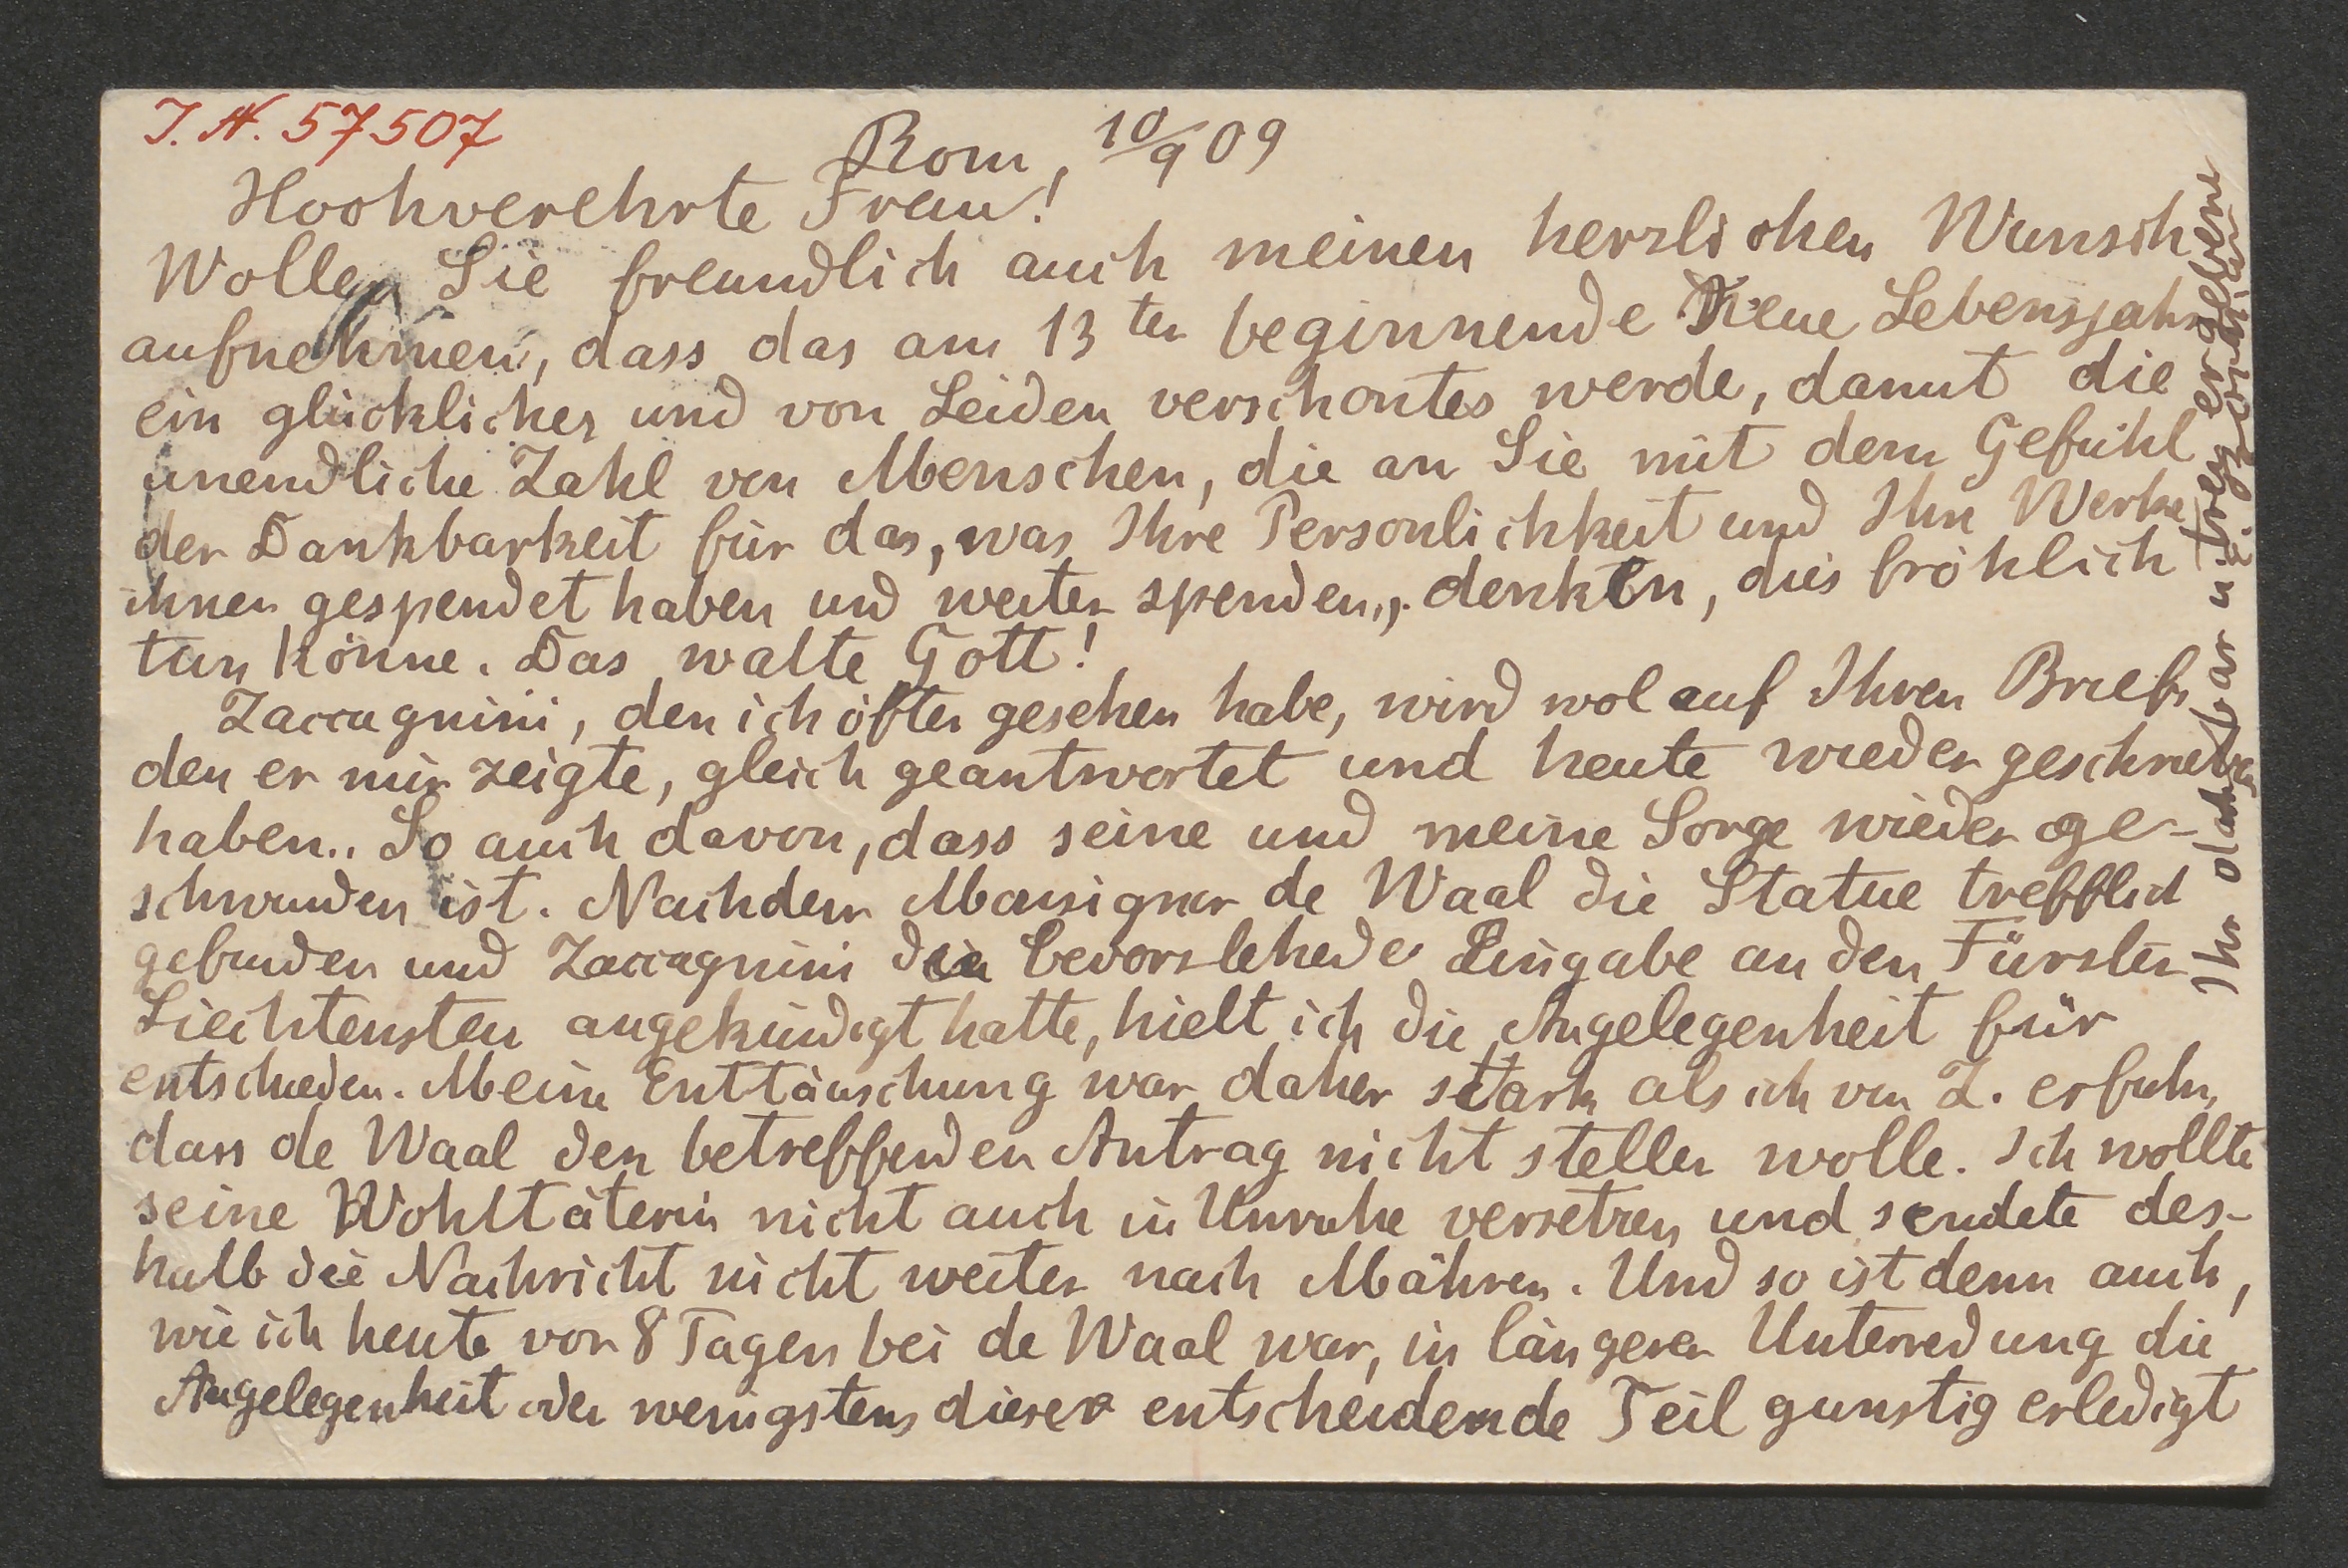 I. N. 57507
Rom, 10/9 09
Hochverehrte Frau!
Wollen Sie freundlich auch meinen herzlichen Wunsch
aufnehmen, dass das am 13ten beginnende neue Lebensjahr
ein glückliches und von Leiden verschontes werde, damit die
unendliche Zahl von Menschen, die an Sie mit dem Gefühl
der Dankbarkeit für das, was Ihre Persönlichkeit und Ihre Werke
ihnen gespendet haben und weiter spenden, denken, dies fröhlich
tun könne. Das walte Gott!
Zaccagnini, den ich öfter gesehen habe, wird wol auf Ihren Brief,
den er mir zeigte, gleich geantwortet und heute wieder geschrieben
haben.. So auch davon, dass seine und meine Sorge wieder ge-
schwunden ist. Nachdem Monsignor de Waal die Statue trefflich
gefunden und Zaccagnini die bevorstehende Eingabe an den Fürsten
Liechtenstein angekündigt hatte, hielt ich die Angelegenheit für
entschieden. Meine Enttäuschung war daher stark als ich von Z. erfuhr,
dass de Waal den betreffenden Antrag nicht stellen wolle. Ich wollte
seine Wohltäterin nicht auch in Unruhe versetzen und sendete des-
halb die Nachricht nicht weiter nach Mähren. Und so ist denn auch,
wie ich heute vor 8 Tagen bei de Waal war, in längerer Unterredung die
Angelegenheit oder wenigstens dieser entscheidende Teil günstig erledigt
Ihr dankbar u. treu ergebene